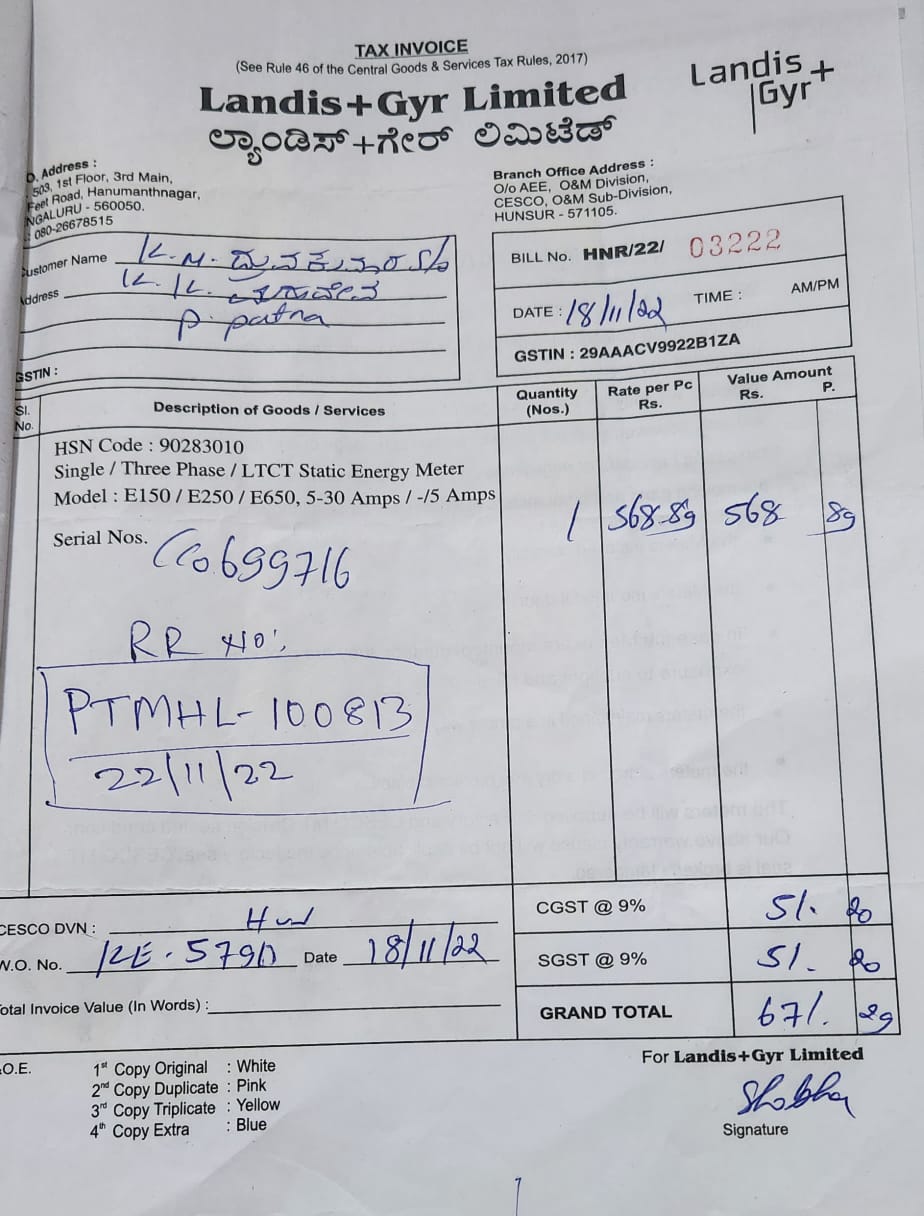 TAX INVOICE
(See Rule 46 of the Central Goods & Services Tax Rules, 2017)
Landis+Gyr Limited
ಲ್ಯಾಂಡಿಸ್+ಗೇರ್ ಲಿಮಿಟೆಡ್
Landis+
Gyr
Address :
503, 1st Floor, 3rd Main,
Feet Road, Hanumanthnagar,
NGALURU - 560050.
: 080-26678515
Branch Office Address :
O/o AEE, O&M Division,
CESCO, O&M Sub-Division,
HUNSUR - 571105.
Customer Name K. N. S/o
Address K. K.
P. Patna
GSTIN :
BILL No. HNR/22/ 03222
DATE : 18/11/22 TIME : AM/PM
GSTIN : 29AAACV9922B1ZA
Sl. No. Description of Goods / Services Quantity (Nos.) Rate per Pc Rs. Value Amount Rs. P.
HSN Code : 90283010
Single / Three Phase / LTCT Static Energy Meter
Model : E150 / E250 / E650, 5-30 Amps / -/5 Amps
1 568.89 568 89
Serial Nos. 699716
RR No:
PTMHL-100813
22/11/22
CGST @ 9% 51. 20
SGST @ 9% 51. 20
GRAND TOTAL 671. 29
CESCO DVN :
W.O. No. Date 18/11/22
Total Invoice Value (In Words) :
.O.E.
1st Copy Original : White
2nd Copy Duplicate : Pink
3rd Copy Triplicate : Yellow
4th Copy Extra : Blue
For Landis+Gyr Limited
Shobha
Signature